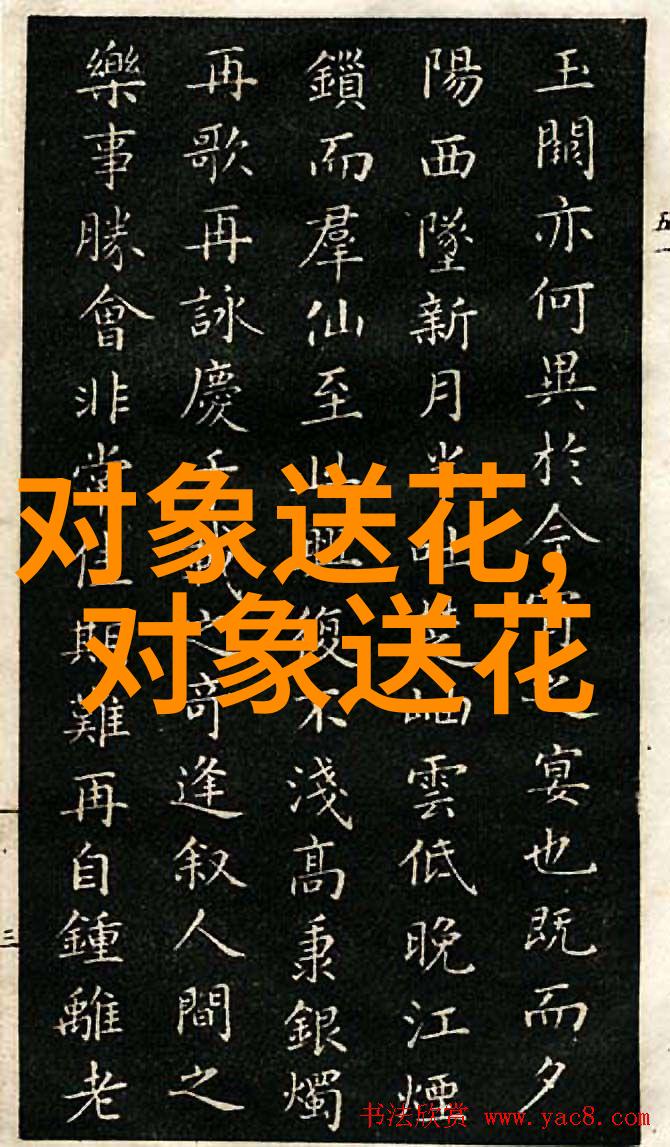 玉闕亦何異於今宵之宴也既而夕
陽西墜新月半吐芝岫雲低晚江煙
鎖而羣仙至此興復不淺高秉銀燭
再歌再詠慶千載之奇逢叙人間之
樂事勝會非常佳期難再自鍾離老
对象送花,
对象送花
五
三
书法欣赏 www.yac8.com